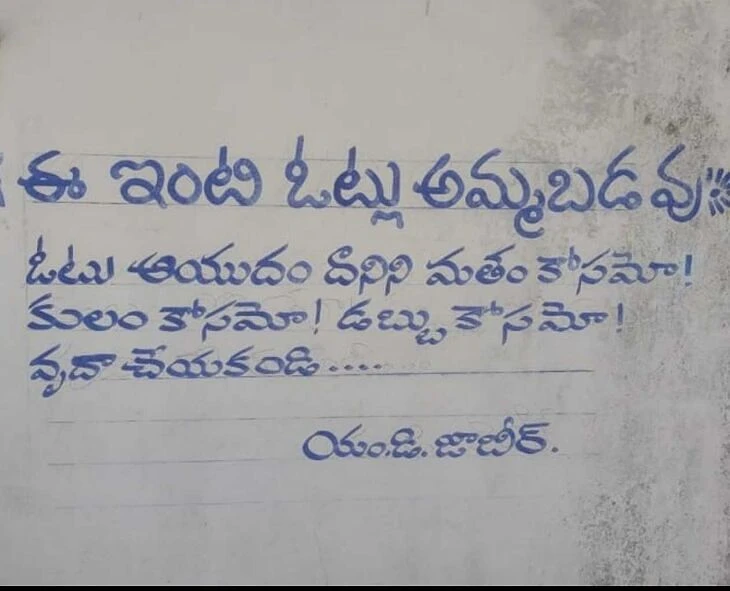 ఈ ఇంటి ఓట్లు అమ్మబడవు
ఓటు ఆయుదం దానిని మతం కోసమో!
కులం కోసమో! డబ్బు కోసమో!
వృదా చేయకండి....
యం.డి. జాబీర్.